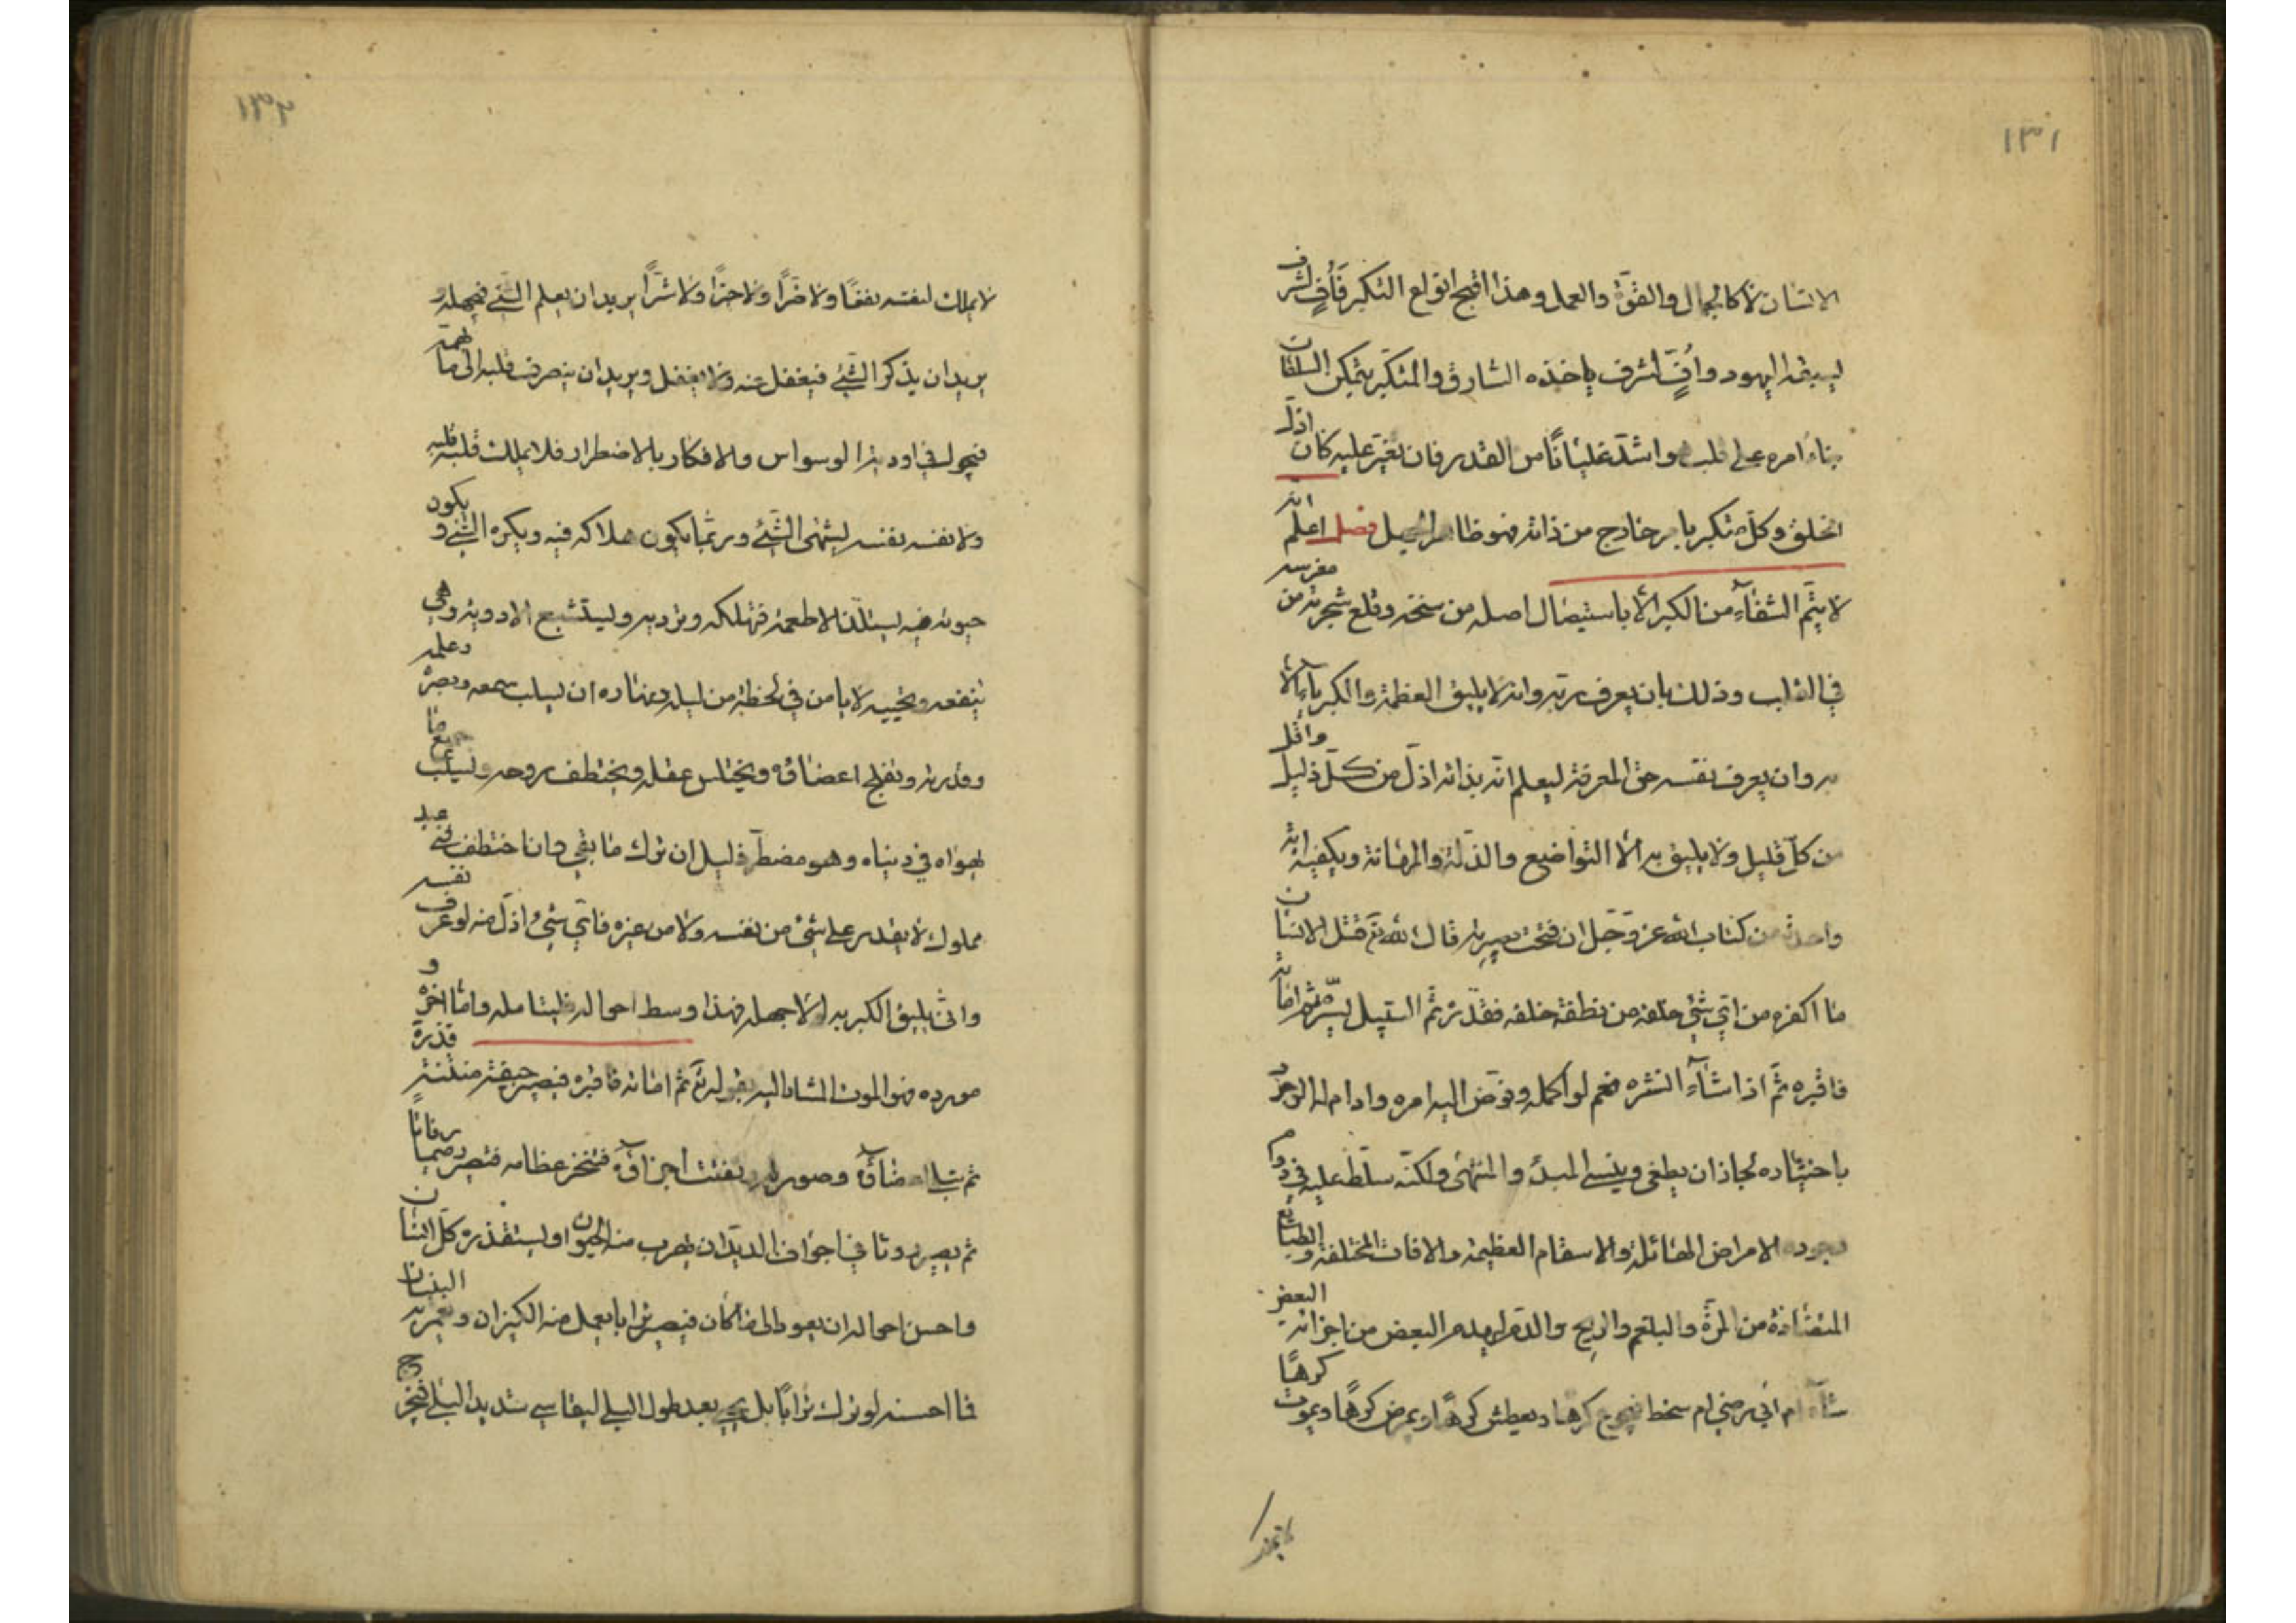 ١٣١
الانسان لا كالجمال والقوّة والعمل وهذا اقبح انواع التكبر فأفٍ لشرف
يسبقه اليهود وأفٍّ لشرف ياخذه السارق والمتكبّر بتمكين السلطان
بناء امره على قلب هو اشدّ غليانًا من القدر فان تغيّر عليه كان اذلّ
الخلق وكل متكبر بامر خارج من ذاته فهو ظاهر الجهل فصل اعلم انه
لا يتمّ الشفاء من الكبر الّا باستيصال اصله من سنخه وقلع شجرته من مغرسه
في القلب وذلك بان يعرف ربه وانه لا يليق العظمة والكبرياء الّا
به وان يعرف نفسه حق المعرفة ليعلم انّه بذاته اذلّ من كلّ ذليل واقل
من كلّ قليل ولا يليق به الّا التواضع والذلّة والمهانة ويكفيه اية
واحدة من كتاب الله عز وجّل ان فتحت بصيرته قال الله تع قتل الانسان
ما اكفره من ايّ شيء خلقه من نطفة خلقه فقدّره ثمّ السّبيل يسّره ثم اماته
فاقبره ثمّ اذا شاء انشره نعم لو اكمله وفوّض اليه امره وادام له الوجود
باختياره لجاز ان يطغى وينسى المبدء والمنتهى ولكنّه سلّط عليه في دوام
وجوده الامراض الهائلة والاسقام العظيمة والافات المختلفة والطبايع
المتضادة من المرّة والبلغم والريح والدّم ليهدم البعض من اجزائه البعض
شاء ام ابى رضي ام سخط فيجوع كرها ويعطش كرهًا ويمرض كرهًا ويموت كرهًا
لا يملك
لا يملك لنفسه نفعًا ولا ضرًّا ولا خيرًا ولا شرًّا يريد ان يعلم الشّيء فيجهله و
يريد ان يذكر الشّيء فيغفل عنه ولا يغفل ويريد ان ينصرف قلبه الى ما يهمّه
فيجول في اودية الوسواس والافكار بالاضطرار فلا يملك قلبه قلبه
ولا نفسه نفسه يشتهى الشّيء وربمّا يكون هلاكه فيه ويكره الشّيء و يكون
حيوته فيه يستلذّ الاطعمة فتهلكه وترديه ويستشبع الادوية وهي
تنفعه وتحييه لا يامن في لحظة من ليله ونهاره ان يسلب سمعه وبصره وعلمه
وقدرته وتفلج اعضاؤه ويختلس عقله ويختطف روحه ويسلب جميع ما
يهواه في دنياه وهو مضطرّ ذليل ان ترك ما بقي وان اختطف فني عبد
مملوك لا يقدر على شيء من نفسه ولا من غيره فايّ شيء اذلّ منه لو عرف نفسه
وانّى يليق الكبر به لولا جهله فهذا وسط احواله فليتامله وامّا اخره و
مورده فهو الموت المشار اليه بقوله تع ثمّ اماته فاقبره فيصير جيفة منتنة قذرة
ثم تبلى اعضاؤه وصورته وتفتت اجزاؤه فتنخر عظامه فتصير رميمًا رفاتًا
ثم يصير روثا في اجواف الديدان يهرب منه الحيوان ويستقذره كلّ انسان
واحسن احواله ان يعود الى ما كان فيصير ترابا يعمل منه الكيزان ويعمر به البنيان
فما احسنه لو ترك ترابًا بل يحيى بعد طول البلى ليقاسي شديد البلى فيخرج